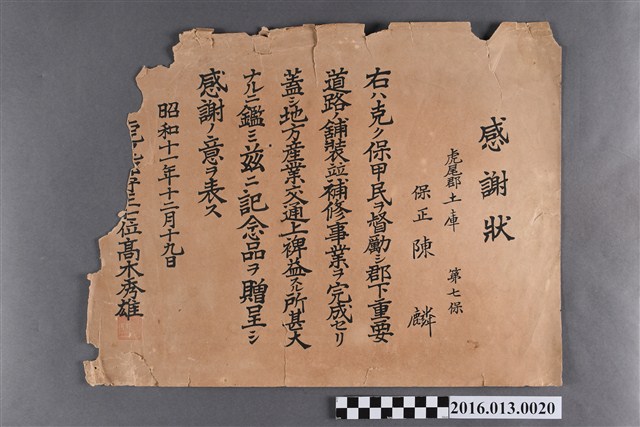 感謝狀
虎尾郡土庫 第七保
保正 陳麟
右ハ克ク保甲民ヲ督勵シ郡下重要
道路ノ舖裝竝補修事業ヲ完成セリ
蓋シ地方產業交通上裨益スル所甚大
ナルニ鑑ミ茲ニ記念品ヲ贈呈シ
感謝ノ意ヲ表ス
昭和十一年十二月十九日
七位髙木秀雄
2016.013.0020